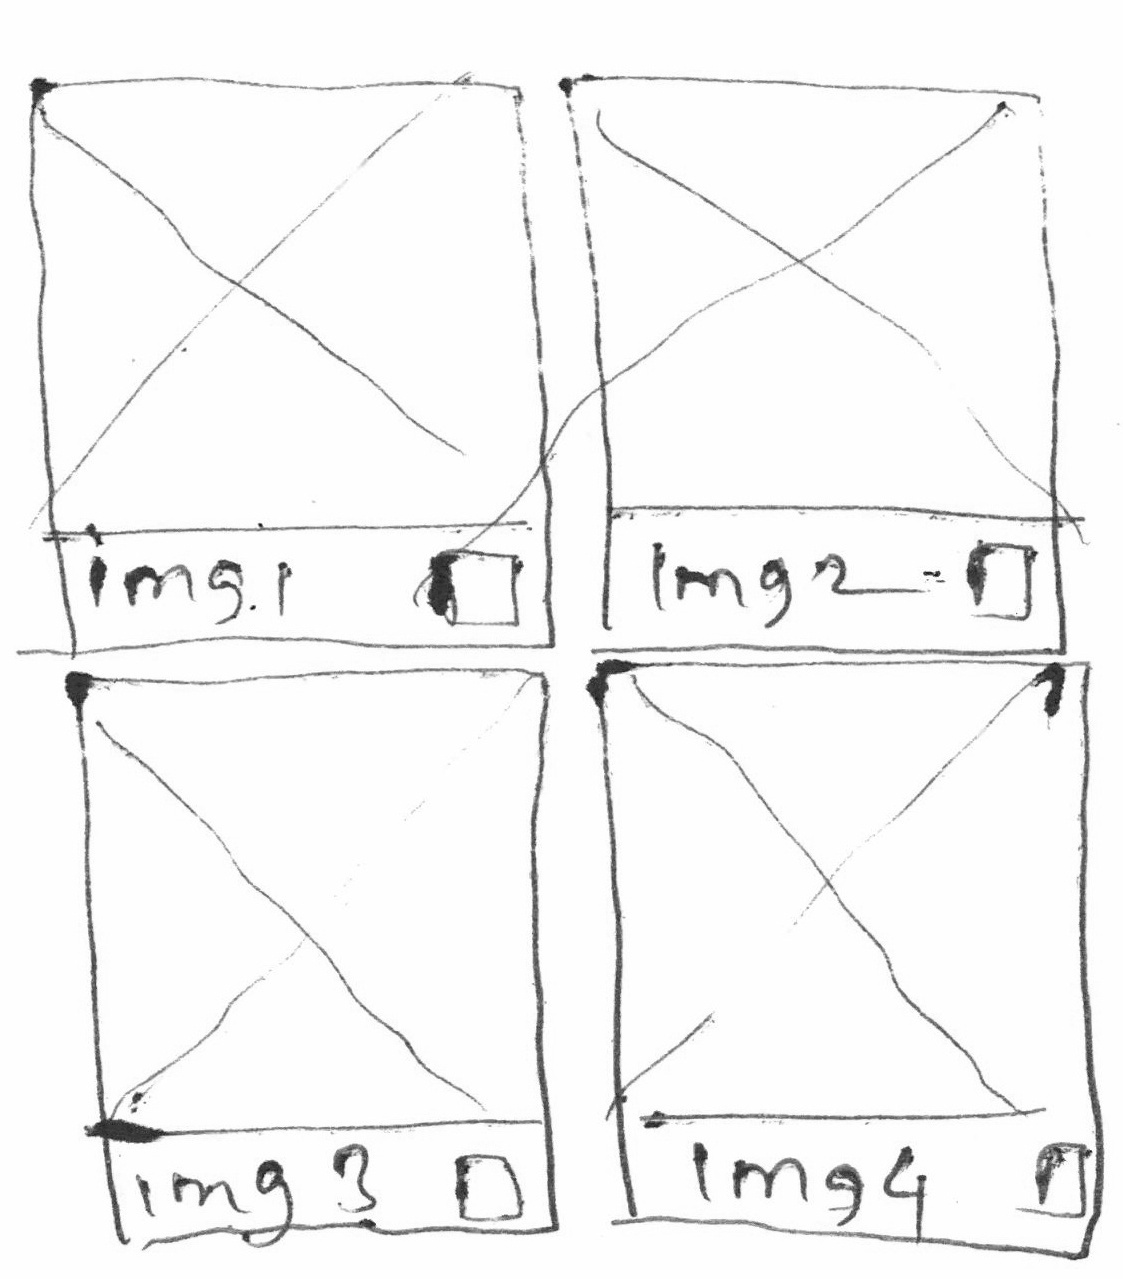 img.1
Img 2
img 3
Img 4